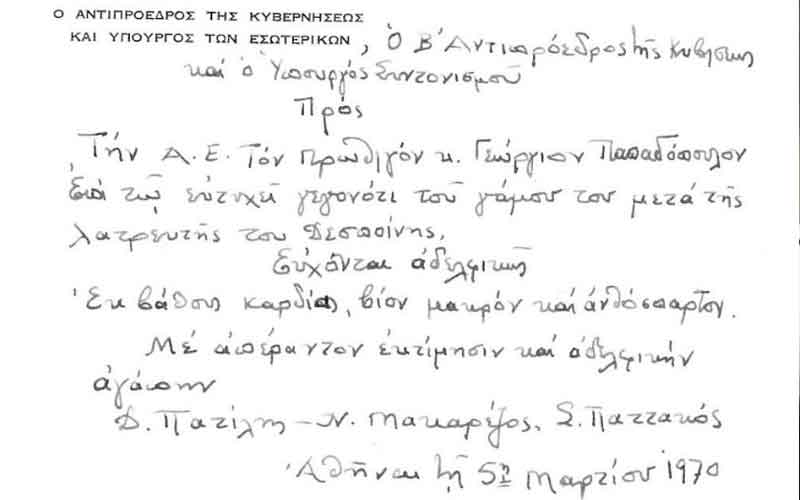 Ο ΑΝΤΙΠΡΟΕΔΡΟΣ ΤΗΣ ΚΥΒΕΡΝΗΣΕΩΣ
ΚΑΙ ΥΠΟΥΡΓΟΣ ΤΩΝ ΕΣΩΤΕΡΙΚΩΝ, Ὁ Β΄ Ἀντιπρόεδρος τῆς Κυβ/σεως
καί ὁ Ὑπουργός Συντονισμοῦ
Πρός
Τήν Α.Ε. Τόν Πρωθ/γόν κ. Γεώργιον Παπαδόπουλον
Ἐπί τῷ εὐτυχεῖ γεγονότι τοῦ γάμου του μετά τῆς
λατρευτῆς του Δεσποίνης,
Εὐχόνται ἀδελφικῶς
Ἐκ βάθους καρδίας, βίον μακρόν καί ἀνθόσπαρτον.
Μέ ἀπέραντον ἐκτίμησιν καί ἀδελφικήν
ἀγάπην
Δ. Πατίλης – Ν. Μακαρέζος, Σ. Παττακός
Ἀθῆναι τῇ 5ῃ Μαρτίου 1970